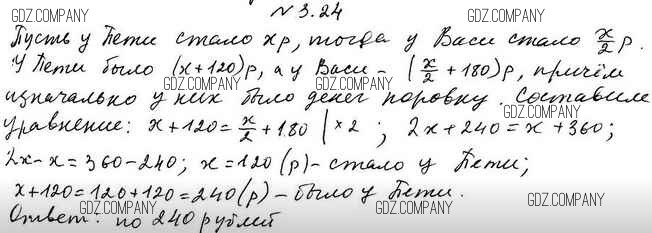 №3.24
Пусть у Пети стало xр, тогда у Васи стало x/2 р.
У Пети было (x+120)р, а у Васи - (x/2 + 180)р, причём
изначально у них было денег поровну. Составим
уравнение: x+120 = x/2 + 180 | ×2 ; 2x+240 = x+360;
2x-x=360-240; x=120 (р)- стало у Пети;
x+120=120+120=240(р)- было у Пети.
Ответ: по 240 рублей
GDZ.COMPANY
GDZ.COMPANY
GDZ.COMPANY
GDZ.COMPANY
GDZ.COMPANY
GDZ.COMPANY
GDZ.COMPANY
GDZ.COMPANY
GDZ.COMPANY